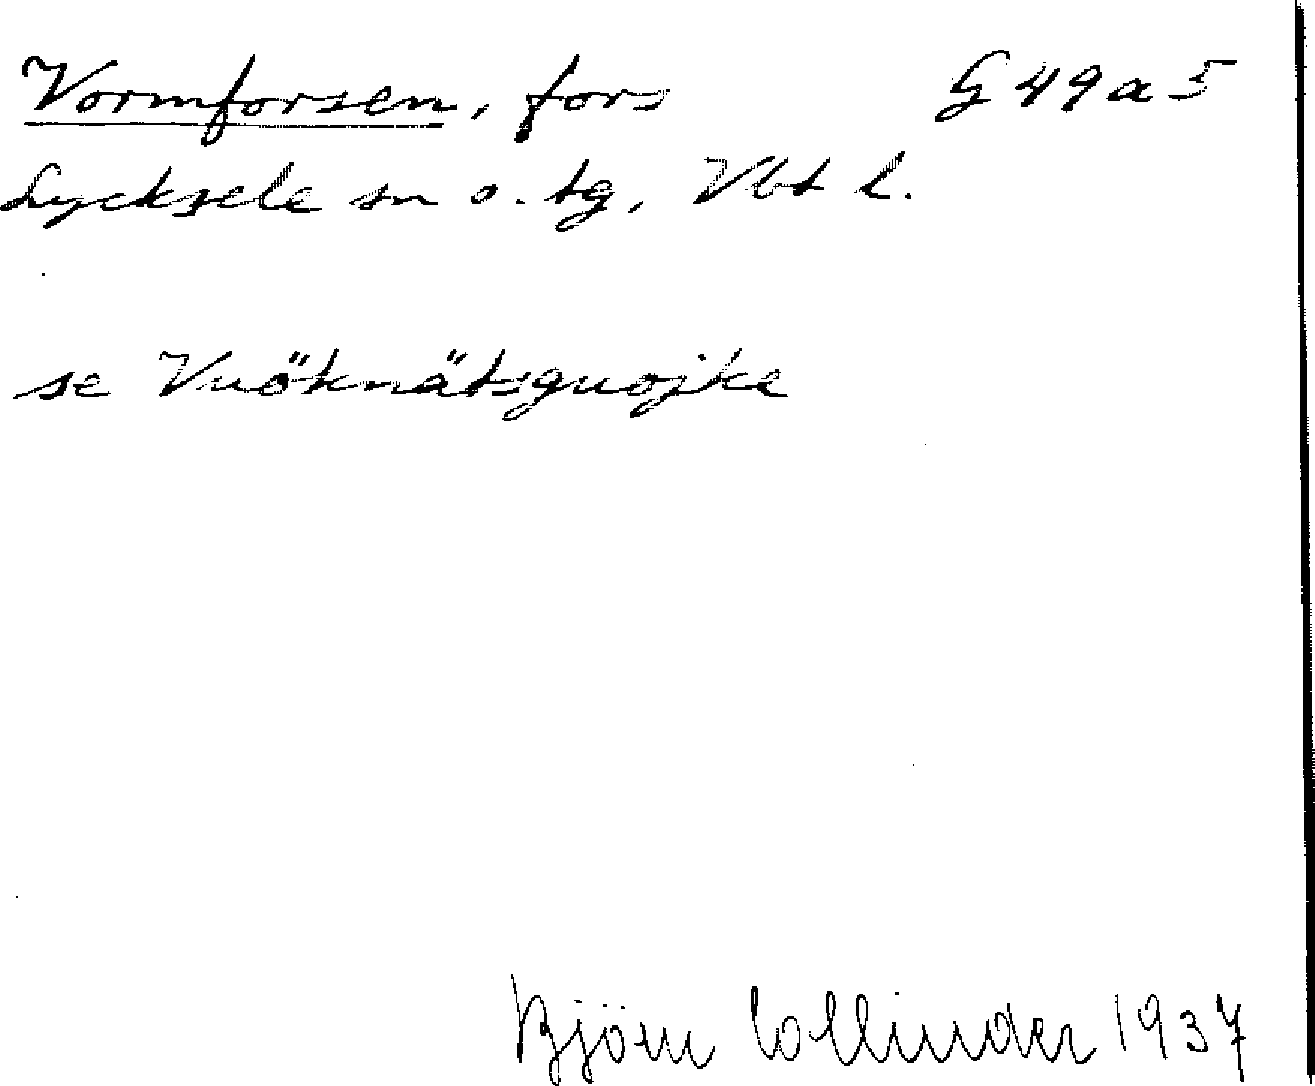 Vormforsen, fors G 49 a 5
Lycksele sn o. tg, Vbt l.
se Vuöknätsguojke
Björn Collinder 1937